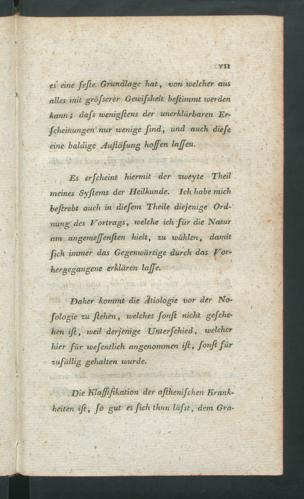 VII
es eine feſte Grundlage hat, von welcher aus
alles mit gröſserer Gewiſsheit beſtimmt werden
kann; daſs wenigſtens der unerklärbaren Er-
ſcheinungen nur wenige ſind, und auch dieſe
eine baldige Auflöſung hoffen laſſen.
Es erſcheint hiermit der zweyte Theil
meines Syſtems der Heilkunde. Ich habe mich
beſtrebt auch in dieſem Theile diejenige Ord-
nung des Vortrags, welche ich für die Natur
am angemeſſenſten hielt, zu wählen, damit
ſich immer das Gegenwärtige durch das Vor-
hergegangene erklären laſſe.
Daher kommt die Ätiologie vor der No-
ſologie zu ſtehen, welches ſonſt nicht geſche-
hen iſt, weil derjenige Unterſchied, welcher
hier für weſentlich angenommen iſt, ſonſt für
zufällig gehalten wurde.
Die Klaſſifikation der aſtheniſchen Krank-
heiten iſt, ſo gut es ſich thun läſst, dem Gra-